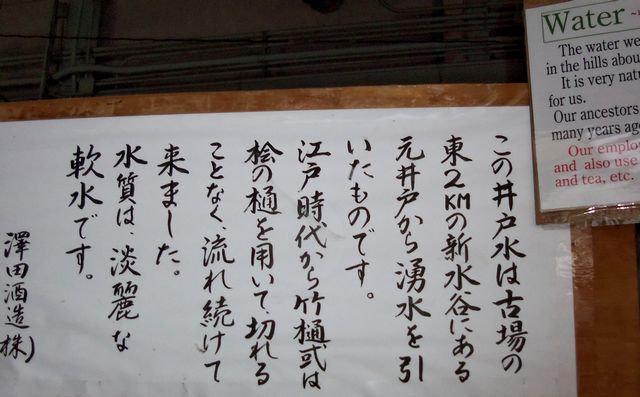 この井戸水は古場の
東2KMの新水谷にある
元井戸から湧水を引
いたものです。
江戸時代から竹樋或は
桧の樋を用いて、切れる
ことなく、流れ続けて
来ました。
水質は、淡麗な
軟水です。
澤田酒造(株)
Water
The water we
in the hills abou
It is very natu
for us.
Our ancestors
many years ago
Our emplo
and also use
and tea, etc.